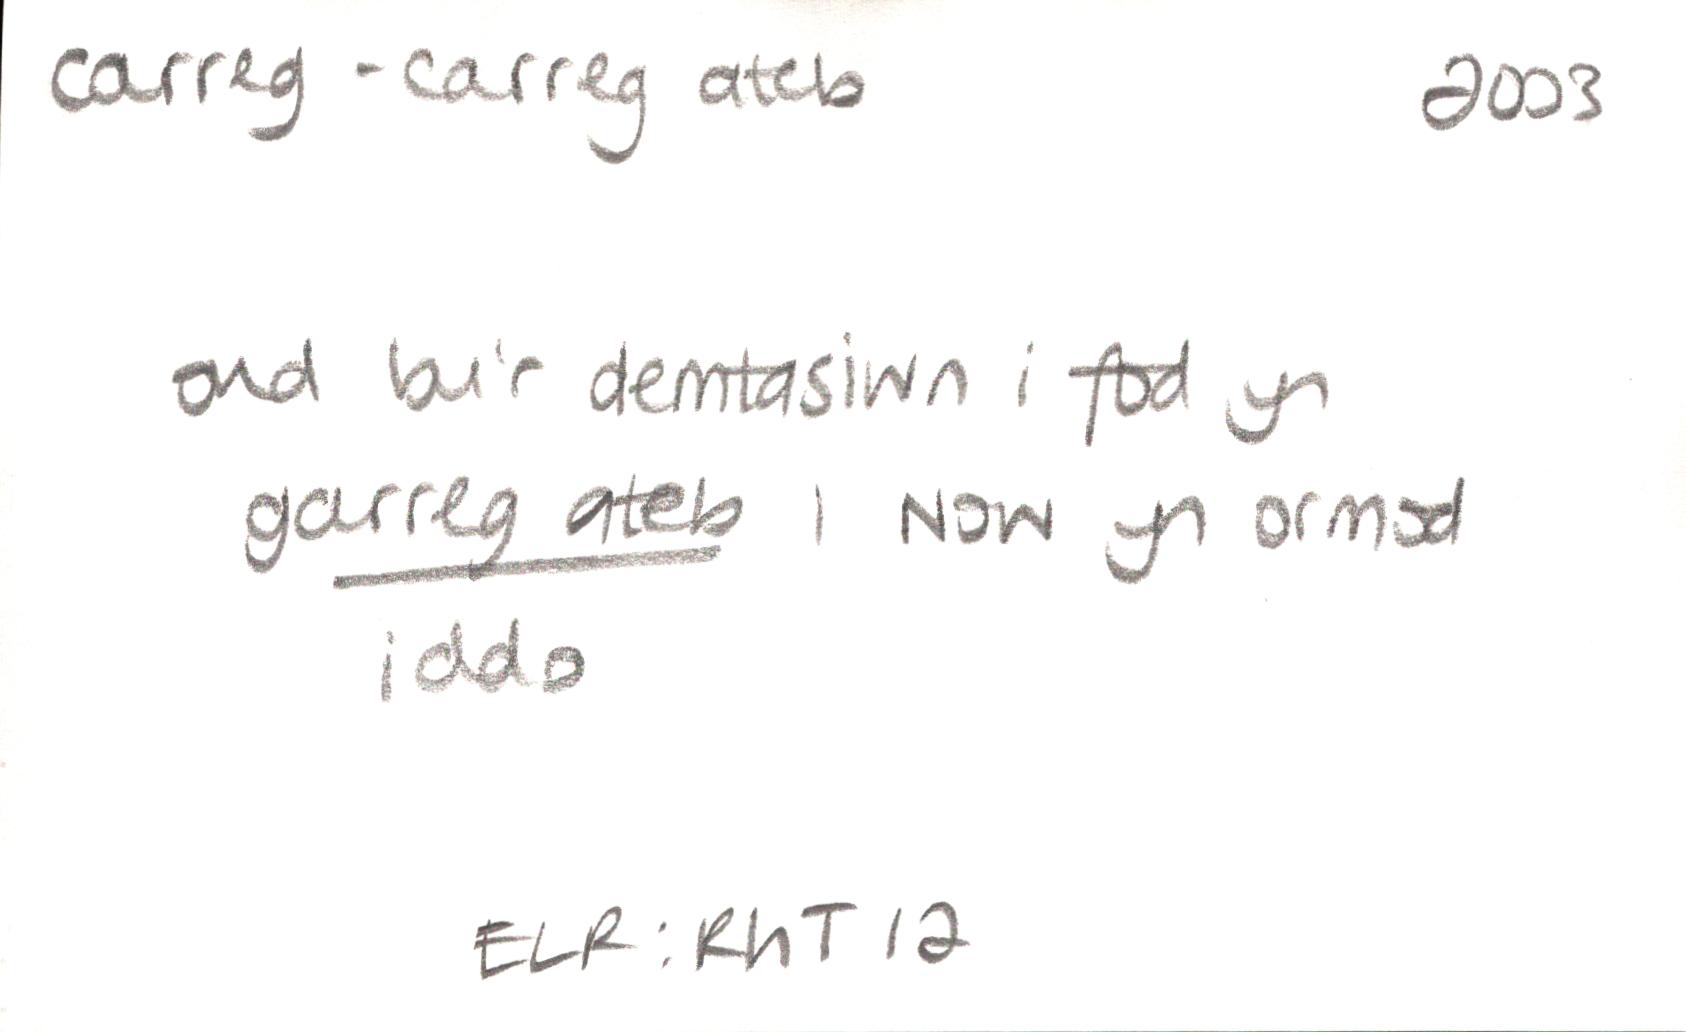 carreg - carreg ateb 2003
ond bu'r demtasiwn i fod yn
garreg ateb i Now yn ormod
iddo
ELR: RhT 12